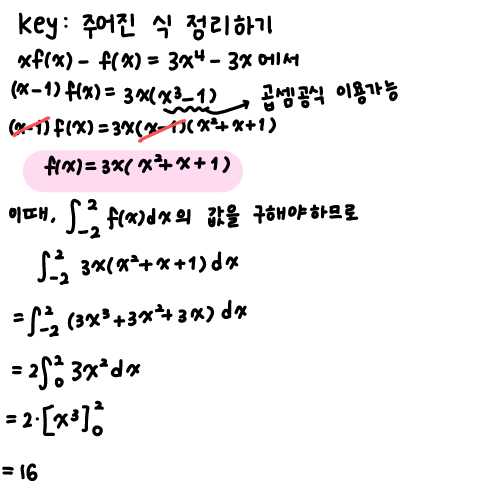 key: 주어진 식 정리하기
xf(x) - f(x) = 3x⁴ - 3x 에서
(x-1) f(x) = 3x(x³-1) → 곱셈공식 이용가능
(x-1) f(x) = 3x(x-1)(x²+x+1)
f(x) = 3x(x²+x+1)
이때, ∫₋₂² f(x)dx의 값을 구해야하므로
∫₋₂² 3x(x²+x+1)dx
= ∫₋₂² (3x³+3x²+3x) dx
= 2∫₀² 3x²dx
= 2·[x³]₀²
= 16